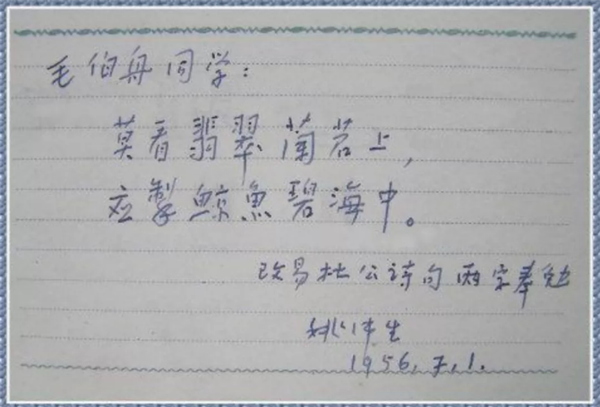 毛伯舟同学：
莫看翡翠蘭苕上，
应掣鲸魚碧海中。
改易杜公诗句两字奉勉
姚 生
1956.7.1.